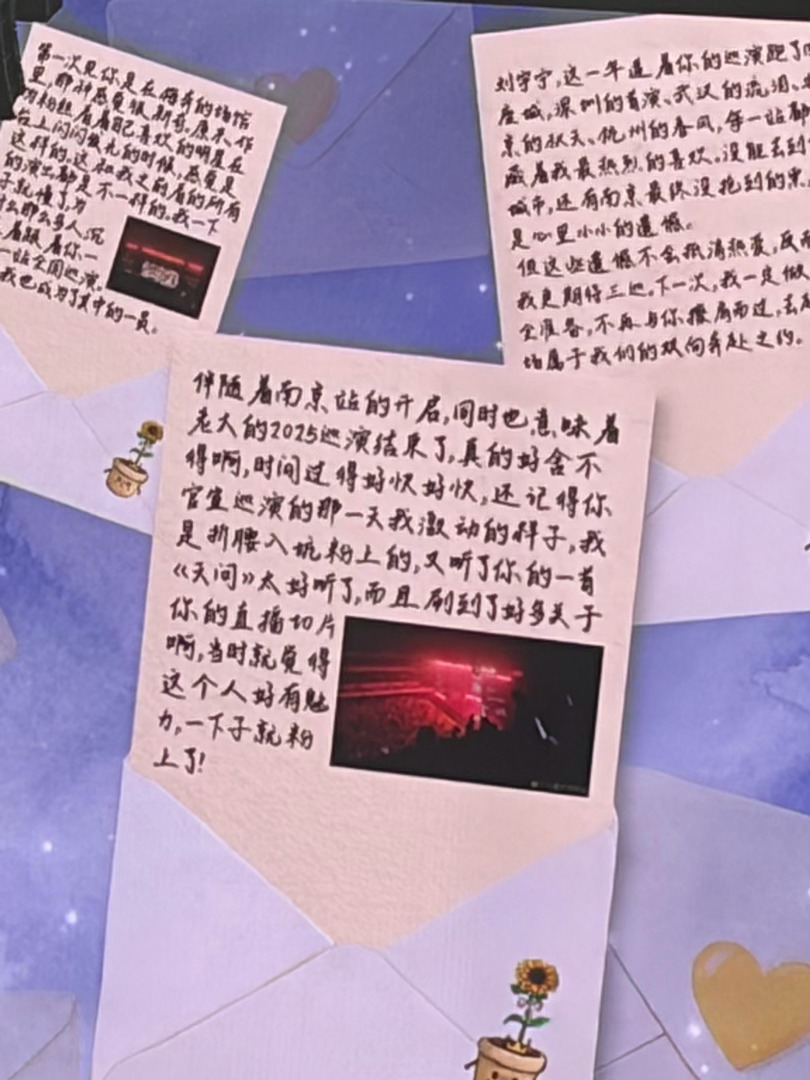 第一次见你是在拥挤的场馆
里,那种感觉很新奇,原来,作
为粉丝看着自己喜欢的明星在
台上闪闪发光的时候,感觉是
这样的,这和我之前看的所有
的演出都是不一样的,我一下
子就懂了为
什么那么多人,沉
着跟着你一
一站全国巡演,
我也成为了其中的一员。
刘宇宁,这一年追着你的巡演跑了
座城,深圳的首演、武汉的流泪、
京的秋天、杭州的春风,每一站都
藏着我最热烈的喜欢。没能去到
城市,还有南京最终没抢到的票,
是心里小小的遗憾。
但这些遗憾不会抵消热爱,反而
我更期待三巡。下一次,我一定做
全准备,不再与你擦肩而过,去赴
场属于我们的双向奔赴之约。
伴随着南京站的开启,同时也意味着
老大的2025巡演结束了,真的好舍不
得啊,时间过得好快好快,还记得你
官宣巡演的那一天我激动的样子,我
是折腰入坑粉上的,又听了你的一首
《天问》太好听了,而且刷到了好多关于
你的直播切片
啊,当时就觉得
这个人好有魅
力,一下子就粉
上了!